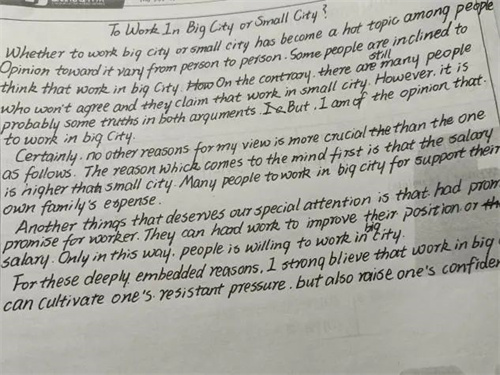 To Work In Big City or Small City?
Whether to work big city or small city has become a hot topic among people
Opinion toward it vary from person to person. Some people are inclined to
think that work in big City. How On the contrary. there are still many people
who won't agree and they claim that work in small city. However, it is
probably some truths in both arguments. I But, I am of the opinion that.
to work in big City.
Certainly, no other reasons for my view is more crucial the than the one
as follows. The reason which comes to the mind first is that the salary
is higher than small city. Many people to work in big city for support their
own family's espense.
Another things that deserves our special attention is that had prom
promise for worker. They can hard work to improve their position or th
salary. Only in this way, people is willing to work in big city.
For these deeply embedded reasons, I strong blieve that work in big
can cultivate one's resistant pressure, but also raise one's confiden